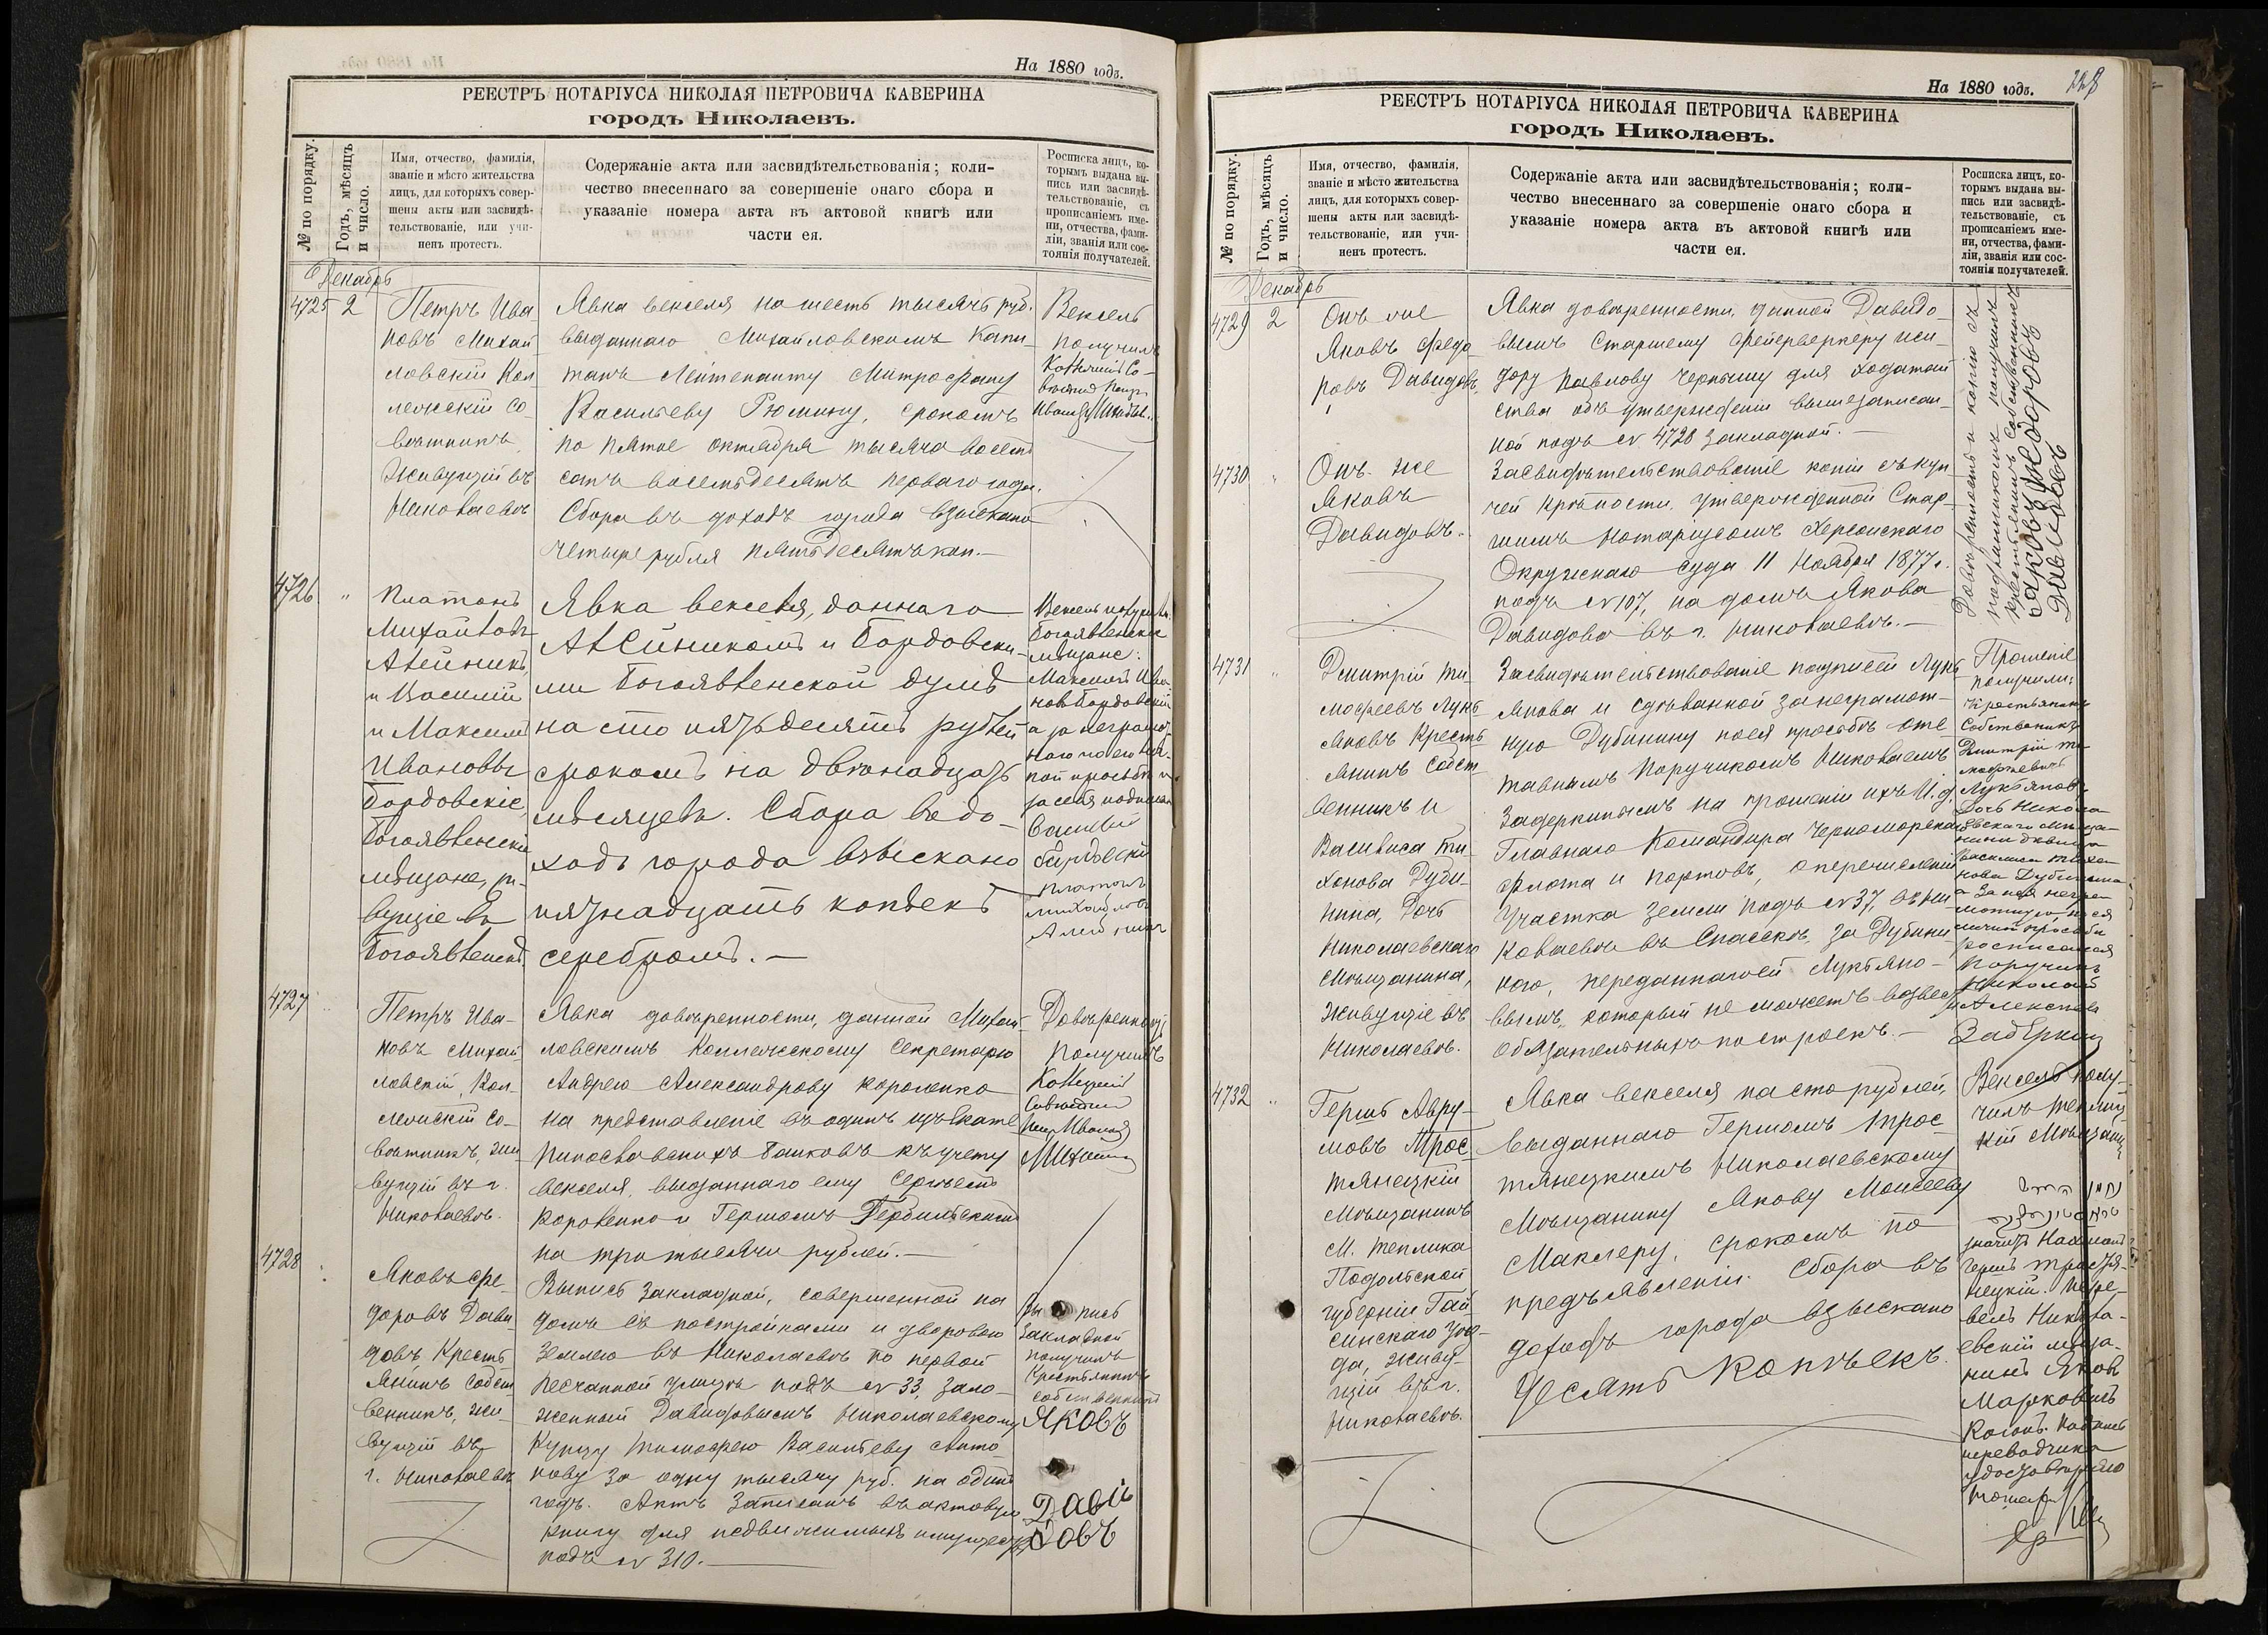 На 1880 годъ.
РЕЕСТРЪ НОТАРІУСА НИКОЛАЯ ПЕТРОВИЧА КАВЕРИНА
городъ Николаевъ.
№ по порядку.
Годъ, мѣсяцъ
и число.
Имя, отчество, фамилія,
званіе и мѣсто жительства
лицъ, для которыхъ совер-
шены акты или засвидѣ-
тельствованіе, или учи-
ненъ протестъ.
Содержаніе акта или засвидѣтельствованія; коли-
чество внесеннаго за совершеніе онаго сбора и
указаніе номера акта въ актовой книгѣ или
части ея.
Росписка лицъ, ко-
торымъ выдана вы-
пись или засвидѣ-
тельствованіе, съ
прописаніемъ име-
ни, отчества, фами-
ліи, званія или сос-
тоянія получателей.
Декабрь
4725 2
Петръ Ива
новъ Михай
ловскій Кол
лежскій Со
вѣтникъ
живущій въ
Николаевѣ
Явка векселя на шесть тысячъ руб.
выданнаго Михайловскимъ Капи-
танъ Лейтенанту Митрофану
Васильеву Рюмину, срокомъ
по пятое октября тысяча восемь
сотъ восемьдесятъ перваго года.
Сбора въ доходъ города взыскано
четыре рубля пятьдесятъ коп.—
Вексель
получилъ
4726 "
Платонъ
Михайловъ
Алейникъ
и Василій
и Максимъ
Ивановы
Бордовскіе,
Богоявленскіе
мѣщане, жи-
вущіе въ
Богоявленскѣ.
Явка векселя, даннаго
Алейникомъ и Бордовски-
ми Богоявленской думѣ
на сто пятьдесятъ рублей
срокомъ на двѣнадцать
мѣсяцевъ. Сбора въ до-
ходъ города взыскано
пятнадцать копѣекъ
серебромъ.—
Вексель получили
Богоявленскіе
мѣщане:
Максимъ Ива
новъ Бордовскій
а за неграмот-
наго по его лич-
ной просьбѣ и
за себя
Василій
Бордовскій
Платонъ
Михайловъ
Алейникъ
4727
Петръ Ива-
новъ Михай
ловскій, Кол
лежскій Со-
вѣтникъ, жи
вущій въ г.
Николаевѣ.
Явка довѣренности, данной Михай-
ловскимъ Коллежскому Секретарю
Андрею Александрову Короленко
на представленіе въ одинъ изъ Екате
ринославскихъ банковъ къ учету
векселя, выданнаго ему Сергѣемъ
Короленко и Гершомъ
на три тысячи рублей.—
Довѣренность
получилъ
4728
Яковъ Ѳе-
доровъ Давы
довъ, Кресть
янинъ Собст
венникъ, жи-
вущій въ
г. Николаевѣ
Выпись Закладной, совершенной на
домъ съ постройками и дворовою
землею въ Николаевѣ по первой
Песчанной улицѣ подъ № 33, зало-
женный Давидовымъ Николаевскому
Купцу Тимофею Васильеву Анто
нову за одну тысячу руб. на одинъ
годъ. Актъ записанъ въ актовую
книгу для недвижимыхъ имуществъ
подъ № 310.—
Выпись
Закладной
получилъ
Крестьянинъ
собственникъ
Яковъ
Дави
довъ
На 1880 годъ.
228
РЕЕСТРЪ НОТАРІУСА НИКОЛАЯ ПЕТРОВИЧА КАВЕРИНА
городъ Николаевъ.
№ по порядку.
Годъ, мѣсяцъ
и число.
Имя, отчество, фамилія,
званіе и мѣсто жительства
лицъ, для которыхъ совер-
шены акты или засвидѣ-
тельствованіе, или учи-
ненъ протестъ.
Содержаніе акта или засвидѣтельствованія; коли-
чество внесеннаго за совершеніе онаго сбора и
указаніе номера акта въ актовой книгѣ или
части ея.
Росписка лицъ, ко-
торымъ выдана вы-
пись или засвидѣ-
тельствованіе, съ
прописаніемъ име-
ни, отчества, фами-
ліи, званія или сос-
тоянія получателей.
Декабрь
4729 2
Онъ же
Яковъ Ѳедо
ровъ Давидовъ.
Явка довѣренности, данной Давидо-
вымъ Старшему Фейерверкеру Иси-
дору Павлову Черному для ходатай
ства объ утвержденіи вышезаписан-
ной подъ № 4728 закладной.—
Довѣренность и копію съ
подлинникомъ получилъ
крестьянинъ собственникъ
Яковъ Ѳедоровъ
Давидовъ
4730 "
Онъ же
Яковъ
Давидовъ.
Засвидѣтельствованіе копіи съ куп
чей крѣпости, утвержденной Стар-
шимъ нотаріусомъ Херсонскаго
Окружнаго суда 11 Ноября 1877 г.
подъ № 107, на домъ Якова
Давидова въ г. Николаевѣ.—
4731 "
Дмитрій Ти-
мофеевъ Лукь
яновъ Кресть
янинъ Собст-
венникъ и
Василиса Ти-
хонова Дуби-
нина, дочь
Николаевскаго
Мѣщанина,
живущіе въ
Николаевѣ.
Засвидѣтельствованіе подписей Лукь
янова и сдѣланной за неграмот-
ную Дубинину по ея просьбѣ от-
ставнымъ Поручикомъ Николаемъ
Задеркинымъ на прошеніи ихъ И. д.
Главнаго Командира Черноморскаго
Флота и портовъ, о перечисленіи
участка земли подъ № 37, въ Ни
колаевѣ въ Спасскѣ, за Дубини
ною, переданнаго ей Лукьяно-
вымъ, который не можетъ возвес
ти обязательныхъ построекъ.—
Прошеніе
получили:
Крестьянинъ
Собственникъ
Дмитрій Ти
мофеевичъ
Лукьяновъ
дочь Никола
евскаго мѣща-
нина
Василиса Тихо
нова Дубинина
а за нея негра
мотную, по ея
личной просьбѣ
росписался
Поручикъ
Николай
Алексѣевъ
Задеркинъ
4732 "
Гершъ Авру-
мовъ Трос-
тянецкій
Мѣщанинъ
М. Теплика
Подольской
губерніи Гай
синскаго уѣз-
да, живу-
щій въ г.
Николаевѣ.
Явка векселя на сто рублей,
выданнаго Гершомъ Трос-
тянецкимъ Николаевскому
Мѣщанину Якову Моисееву
Маклеру, срокомъ по
предъявленіи. Сбора въ
доходъ города взыскано
десять копѣекъ.
Вексель полу-
чилъ Теплиц
кій Мѣщанинъ
значитъ
Гершъ Тростя-
нецкій. Пере-
велъ Никола-
евскій мѣща-
нинъ Яковъ
Марковичъ
Коганъ.
переводчика
удостовѣряю